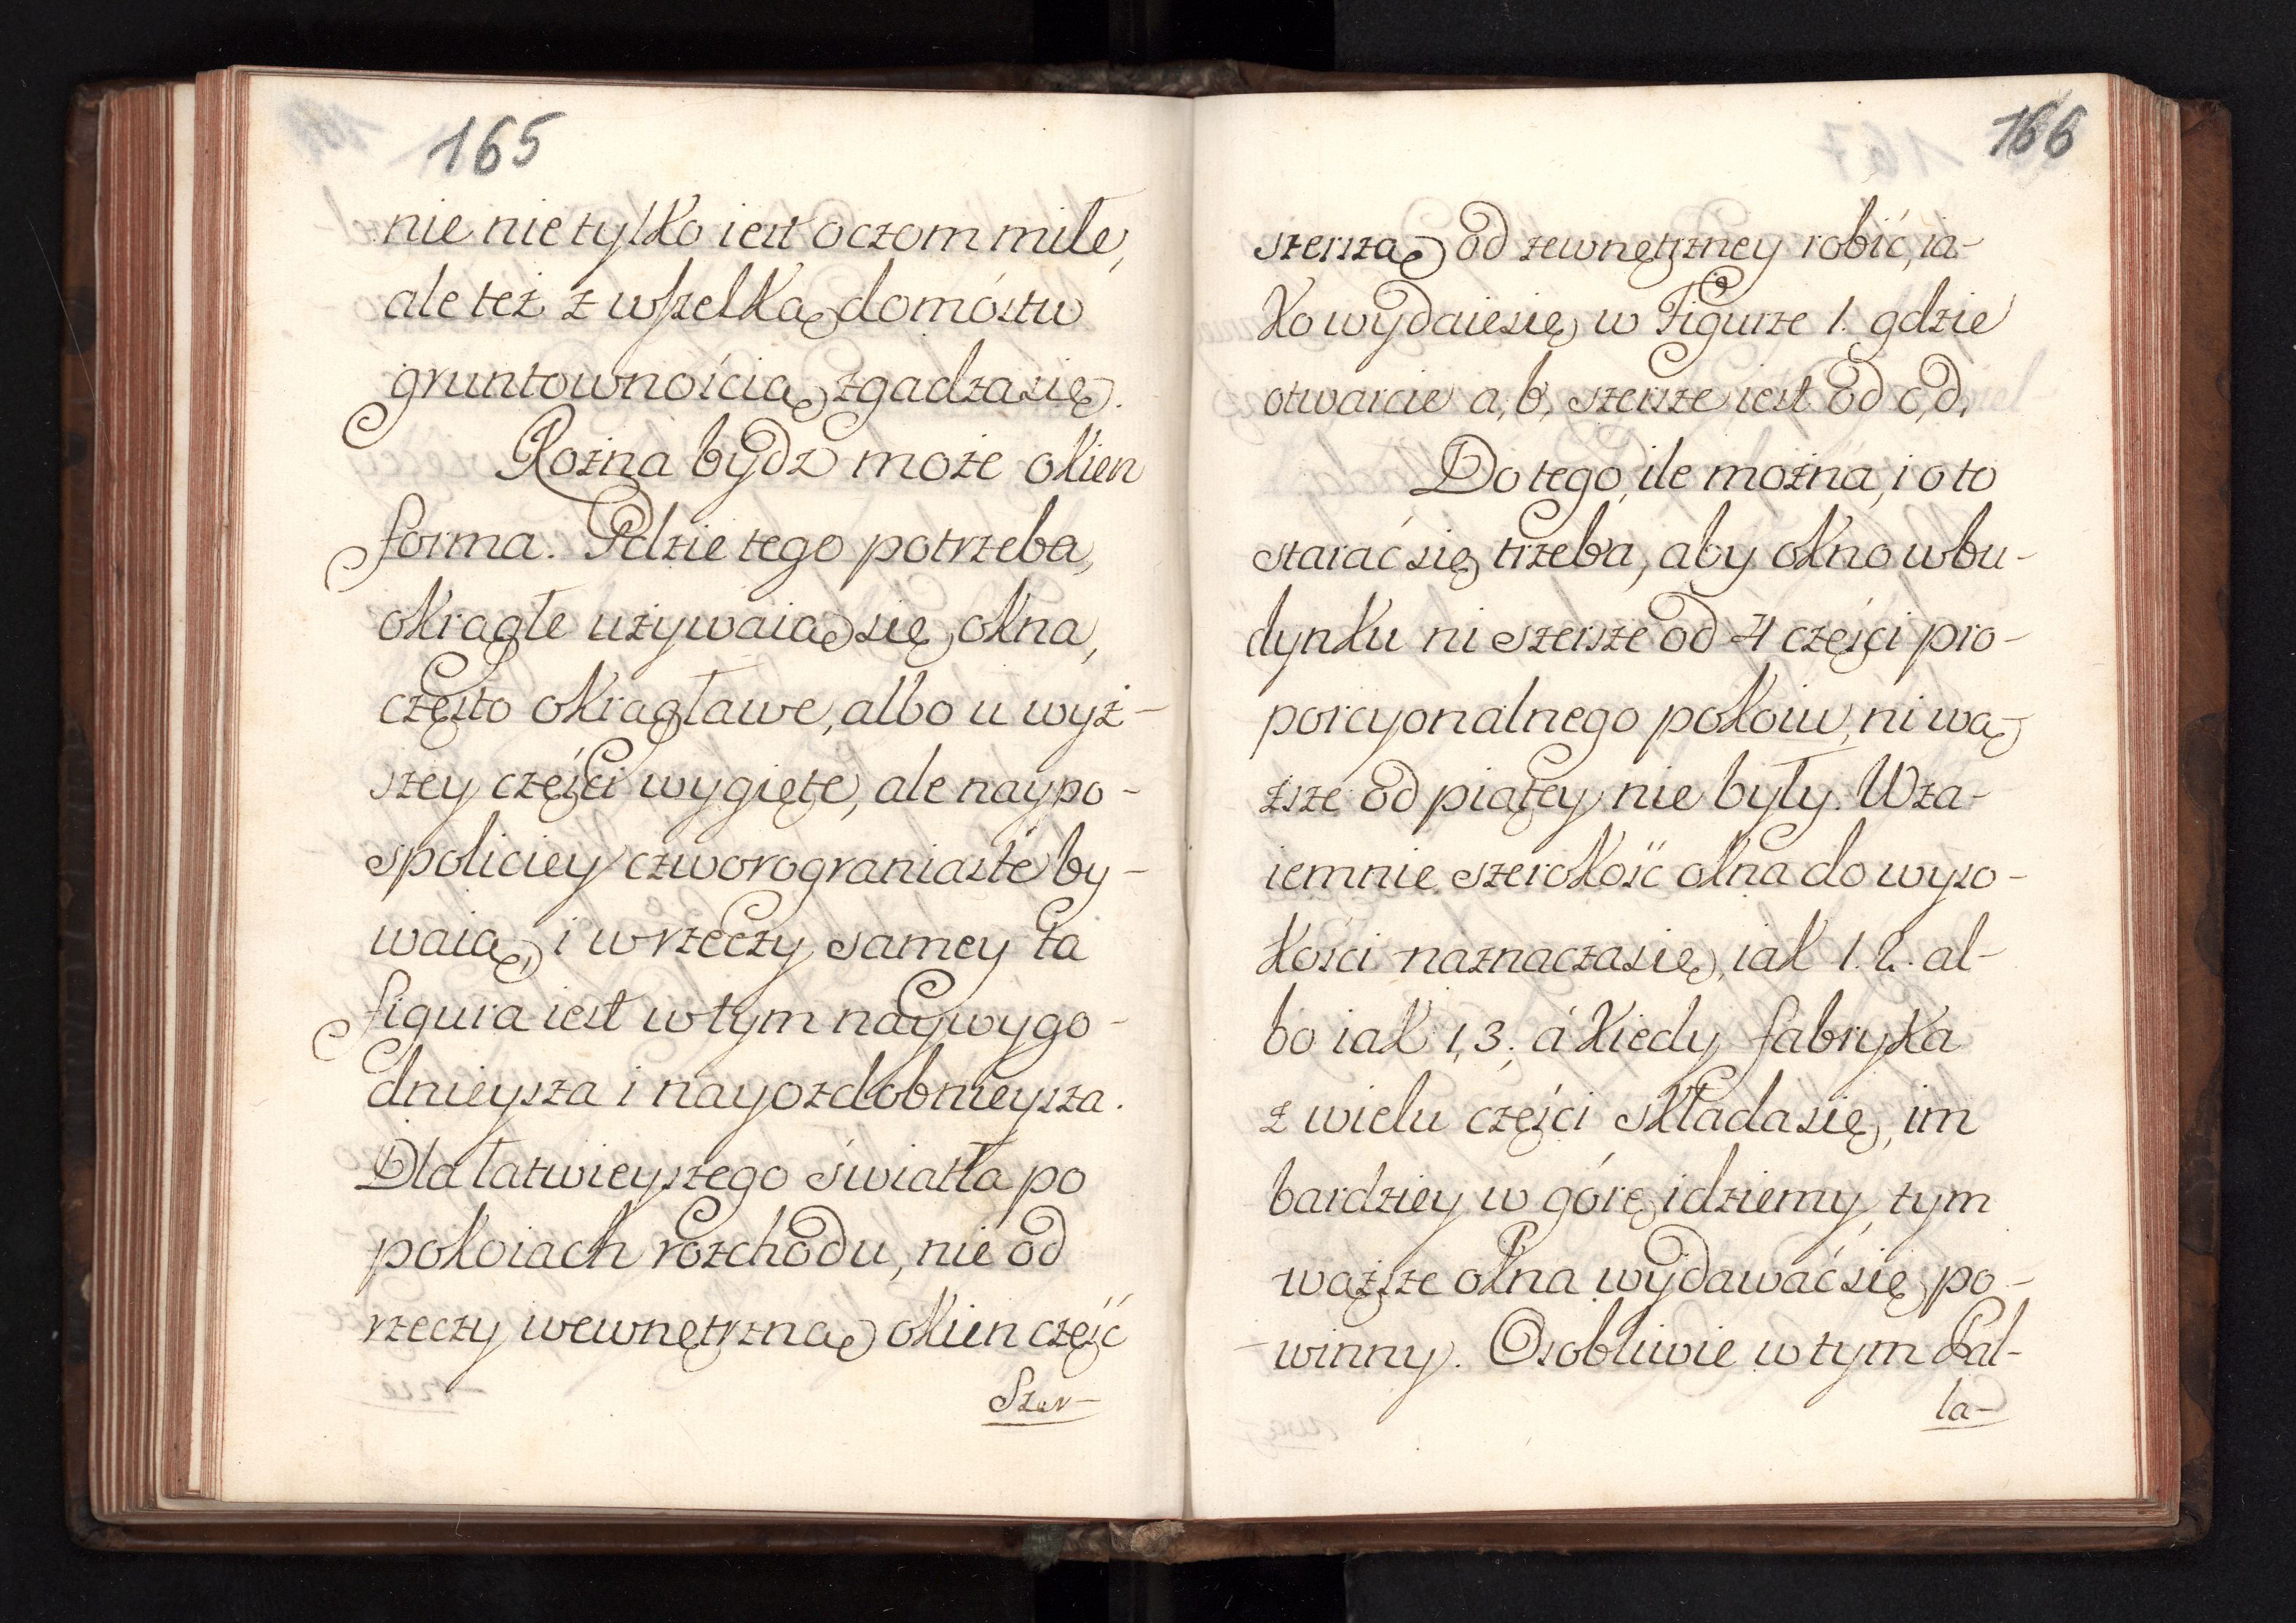 165
nie nie tylko iest oczom miłe,
ale też z wszelką domóstw
gruntownością zgadza się.
Rożna bydz może okien
forma. Gdzie tego potrzeba,
okrągłe używaią się okna,
często okrągławe, albo u wyż-
szey części wygięte, ale naypo-
spoliciey czworograniaste by-
waią, i w rzeczy samey ta
figura iest w tym naywygo-
dnieysza i nayozdobnieysza.
Dla łatwieyszego światła po
pokoiach rozchodu, nie od
rzeczy wewnętrzną okien część
Szer-
166
szerszą od zewnętrzney robić, ia-
ko wydaie się w Figurze 1. gdzie
otwarcie a, b, szersze iest od c, d.
Do tego, ile można, i o to
starać się trzeba, aby okno w bu-
dynku ni szersze od 4 części pro-
porcyonalnego pokoiu, ni wą-
ższe od piątey nie były. Wza-
iemnie szerokość okna do wyso-
kości naznacza się, iak 1. 2. al-
bo iak 1, 3; á kiedy fabryka
z wielu części składa się, im
bardziey w górę idziemy, tym
wąższe okna wydawać się po-
winny. Osobliwie w tym Pal-
la-